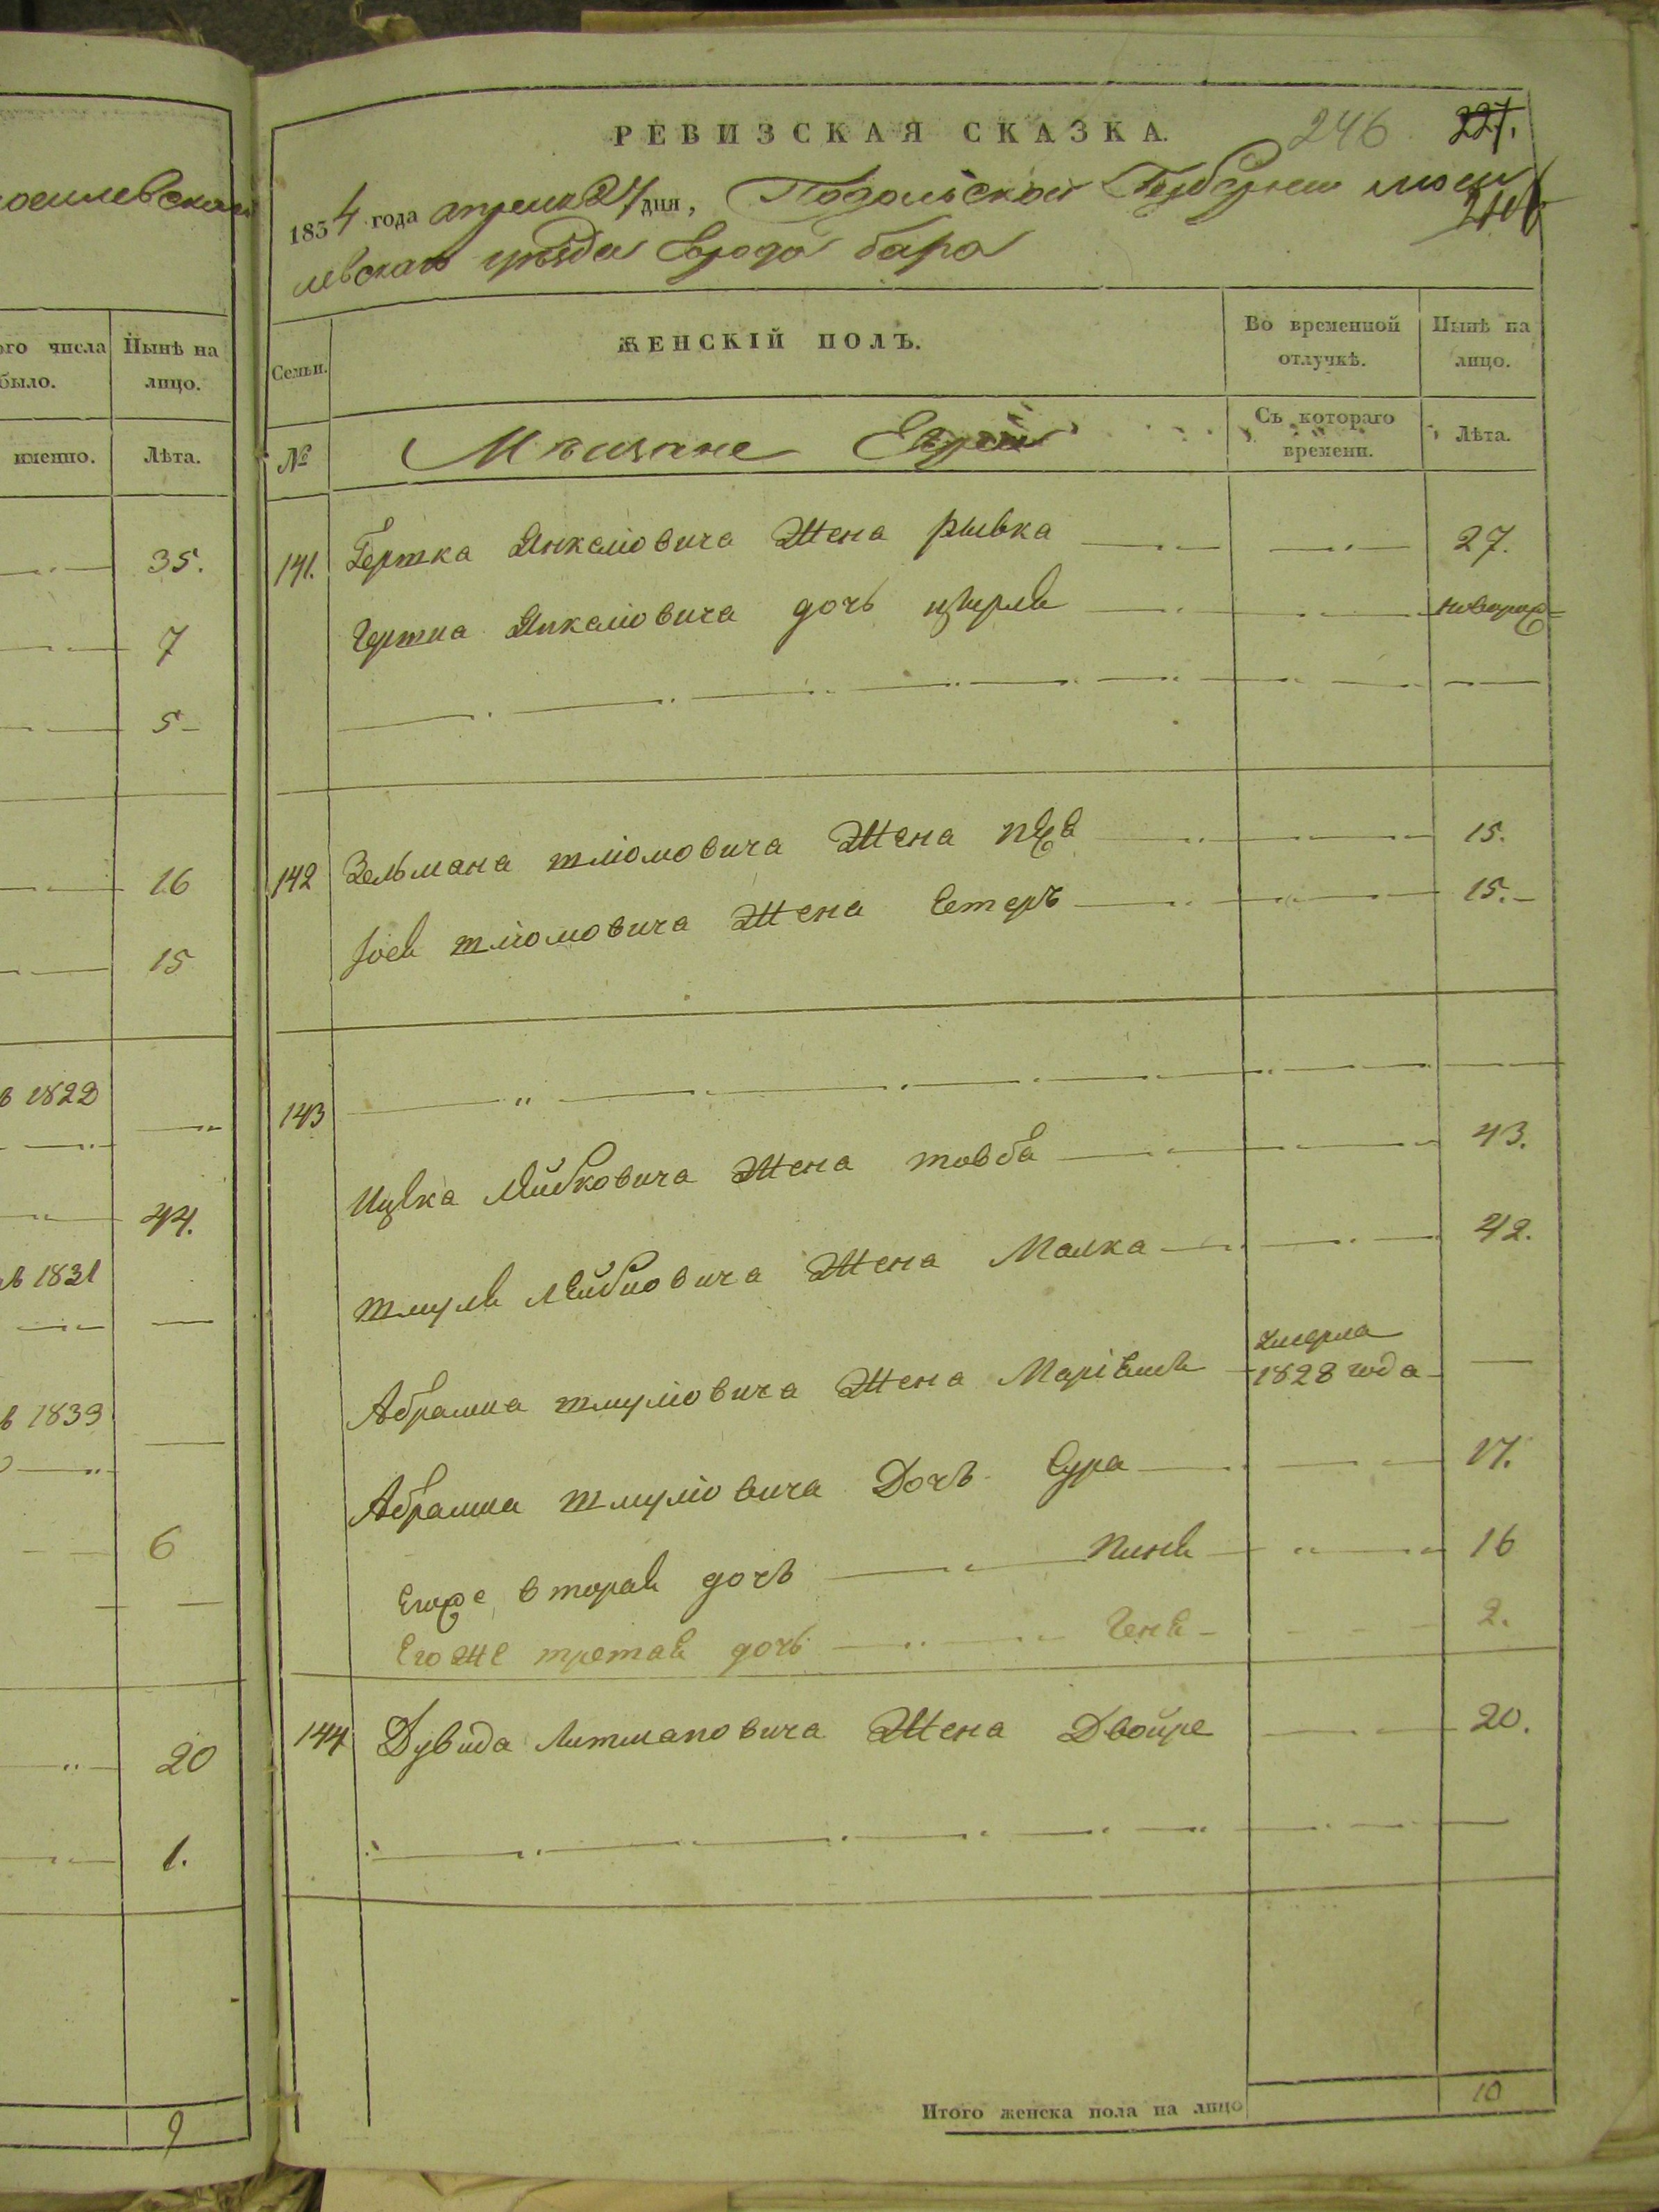 осилевскаго
ого числа
было.
Нынѣ на
лицо.
именно.
Лѣта.
35.
7
5
16
15
в 1822
44.
1831
в 1833
6
20
1.
9
РЕВИЗСКАЯ СКАЗКА.
246 227.
1834 года апреля 24 дня, Подольской Губернии моги
левскаго уѣзда города бара
Семьи.
ЖЕНСКІЙ ПОЛЪ.
Во временной
отлучкѣ.
Нынѣ на
лицо.
№
Мѣщане Евреи
Съ котораго
времени.
Лѣта.
141. Гершка Янкелювича Жена рывка 27.
Гершка Янкелювича дочь цѣрля новорож=
142 Зельмана шліомовича Жена 15.
шліомовича Жена Естеръ 15.
143
Ицька Лейбковича Жена товба 43.
Шмуля Лейбковича Жена Малка 42.
Абрамка шмулювича Жена Маріемъ умерла 1828 года
Абрамка шмулювича Дочь Сура 17.
Егоже вторая дочь 16
Его же третая дочь Геня 2.
144 Дувида Литмановича Жена Двойре 20.
Итого женска пола на лицо 10